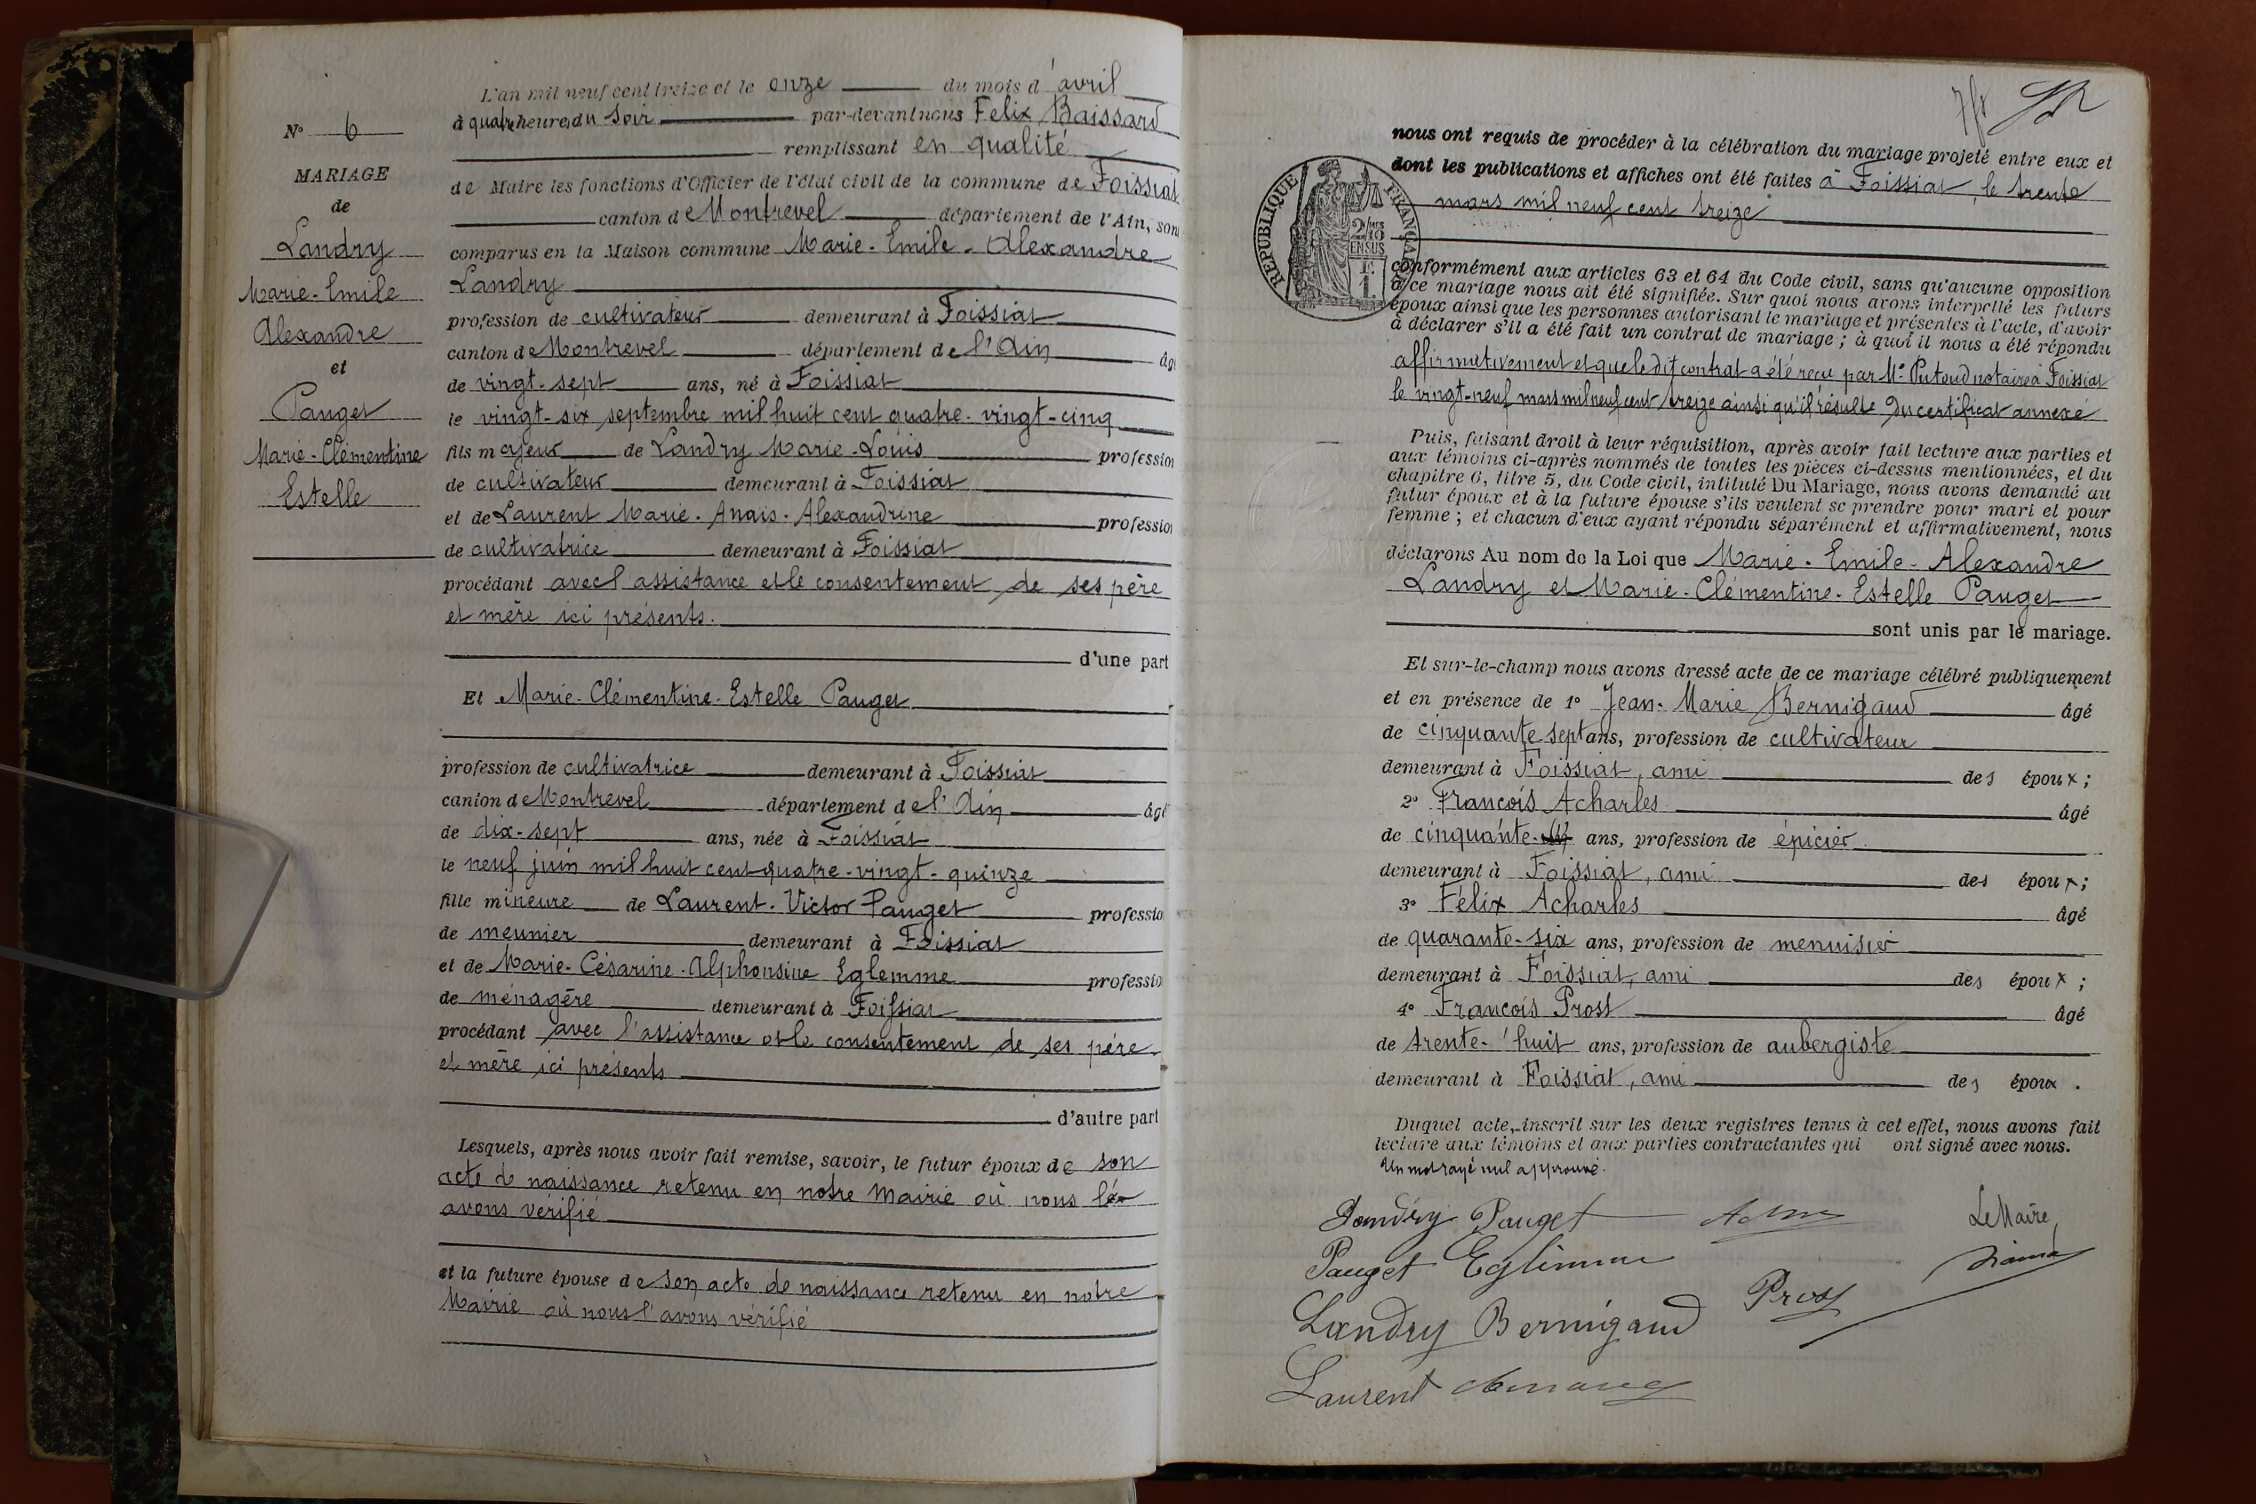 N° 6
MARIAGE
de
Landry
Marie-Emile
Alexandre
et
Pauget
Marie-Clémentine
Estelle
L'an mil neuf cent treize et le onze du mois d'avril
à quatre heures du soir par-devant nous Felix Baissard
remplissant en qualité
de Maire les fonctions d'Officier de l'état civil de la commune de Foissiat
canton de Montrevel département de l'Ain, sont
comparus en la Maison commune Marie-Emile-Alexandre
Landry
profession de cultivateur demeurant à Foissiat
canton de Montrevel département de l'Ain âgé
de vingt-sept ans, né à Foissiat
le vingt-six septembre mil huit cent quatre-vingt-cinq
fils majeur de Landry Marie-Louis profession
de cultivateur demeurant à Foissiat
et de Laurent Marie-Anaïs-Alexandrine profession
de cultivatrice demeurant à Foissiat
procédant avec l'assistance et le consentement de ses père
et mère ici présents.
d'une part
Et Marie-Clémentine-Estelle Pauget
profession de cultivatrice demeurant à Foissiat
canton de Montrevel département de l'Ain âgé
de dix-sept ans, née à Foissiat
le neuf juin mil huit cent quatre-vingt-quinze
fille mineure de Laurent-Victor Pauget professio
de meunier demeurant à Foissiat
et de Marie-Césarine-Alphonsine Eglemme professio
de ménagère demeurant à Foissiat
procédant avec l'assistance et le consentement de ses père
et mère ici présents
d'autre part
Lesquels, après nous avoir fait remise, savoir, le futur époux de son
acte de naissance retenu en notre Mairie où nous l'
avons vérifié
et la future épouse de son acte de naissance retenu en notre
Mairie où nous l'avons vérifié
REPUBLIQUE FRANÇAISE
2/10
EN SUS
1 F.
nous ont requis de procéder à la célébration du mariage projeté entre eux et
dont les publications et affiches ont été faites à Foissiat, le trente
mars mil neuf cent treize
conformément aux articles 63 et 64 du Code civil, sans qu'aucune opposition
à ce mariage nous ait été signifiée. Sur quoi nous avons interpellé les futurs
époux ainsi que les personnes autorisant le mariage et présentes à l'acte, d'avoir
à déclarer s'il a été fait un contrat de mariage ; à quoi il nous a été répondu
affirmativement et que le dit contrat a été reçu par Me Putoud notaire à Foissiat
le vingt-neuf mars mil neuf cent treize ainsi qu'il résulte du certificat annexé
Puis, faisant droit à leur réquisition, après avoir fait lecture aux parties et
aux témoins ci-après nommés de toutes les pièces ci-dessus mentionnées, et du
chapitre 6, titre 5, du Code civil, intitulé Du Mariage, nous avons demandé au
futur époux et à la future épouse s'ils veulent se prendre pour mari et pour
femme ; et chacun d'eux ayant répondu séparément et affirmativement, nous
déclarons Au nom de la Loi que Marie-Emile-Alexandre
Landry et Marie-Clémentine-Estelle Pauget
sont unis par le mariage.
Et sur-le-champ nous avons dressé acte de ce mariage célébré publiquement
et en présence de 1° Jean-Marie Bernigaud âgé
de cinquante sept ans, profession de cultivateur
demeurant à Foissiat, ami des époux ;
2° François Acharles âgé
de cinquante- ans, profession de épicier
demeurant à Foissiat, ami des époux ;
3° Félix Acharles âgé
de quarante-six ans, profession de menuisier
demeurant à Foissiat, ami des époux ;
4° François Prost âgé
de trente-huit ans, profession de aubergiste
demeurant à Foissiat, ami des époux .
Duquel acte, inscrit sur les deux registres tenus à cet effet, nous avons fait
lecture aux témoins et aux parties contractantes qui ont signé avec nous.
Un mot rayé nul approuvé.
Landry Pauget
Le Maire,
Pauget Eglemme
Prost
Landry Bernigaud
Laurent